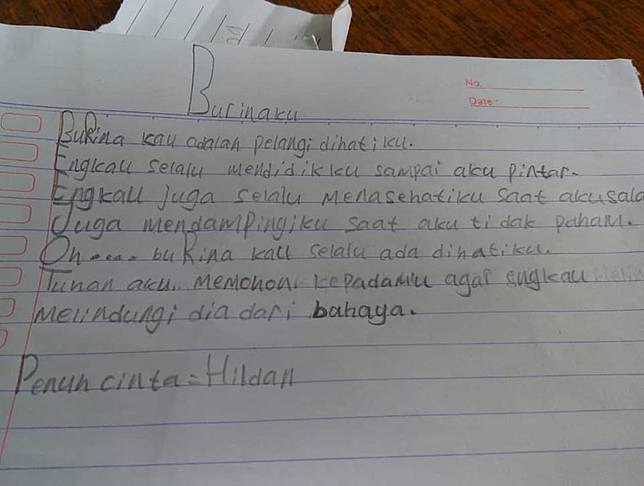 No.
Date:
Burinaku
BuRina kau adalah pelangi dihatiku.
Engkau selalu mendidikku sampai aku pintar.
Engkau juga selalu menasehatiku saat aku sala
Juga mendampingiku saat aku tidak paham.
Oh..... buRina kau selalu ada dihatiku.
Tuhan aku memohon kepadamu agar engkau
Melindungi dia dari bahaya.
Penuh cinta = Hildan